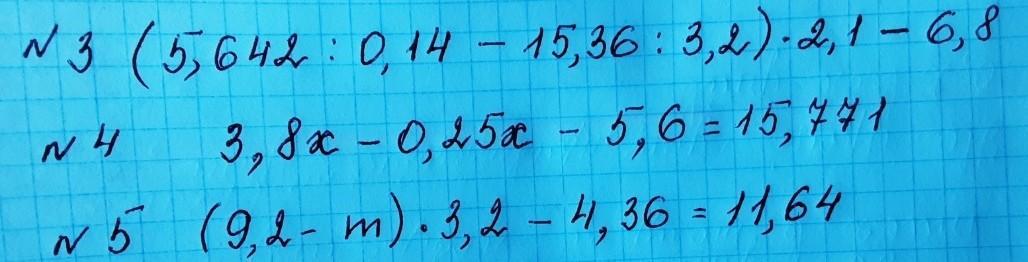 N 3 (5,642 : 0,14 - 15,36 : 3,2) · 2,1 - 6,8
N 4 3,8x - 0,25x - 5,6 = 15,771
N 5 (9,2 - m) · 3,2 - 4,36 = 11,64